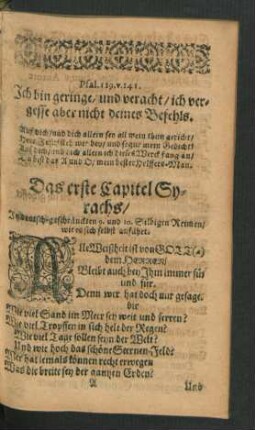 Psal. 119. v. 141.
Ich bin geringe/ und veracht/ ich ver-
gesse aber nicht deines Befehls.
Auf dich/ und dich allein sey all mein thun gericht/
HErr JEsu steh mir bey/ und segne mein Gedicht!
durch dich allein ich dieses Werck fang an/
Du bist das A und O/ mein bester Helffers-Man.
Das erste Capitel Sy-
rachs/
In deutsch-geschränckten 9. und 10. Silbigen Reimen/
wie es sich selbst anfähet.
ALle Weißheit ist von GOTT(a)
dem HERREN/
Bleibt auch bey Ihm immer für
und für.
Denn wer hat doch nur gesagt
dir
Wie viel Sand im Meer sey weit und ferren?
Wie viel Tropffen in sich helt der Regen?
Wie viel Tage sollen seyn der Welt?
Und wie hoch das schöne Sternen-Feld?
Wer hat iemals können recht erwegen
Was die breite sey der gantzen Erden?
A
Und